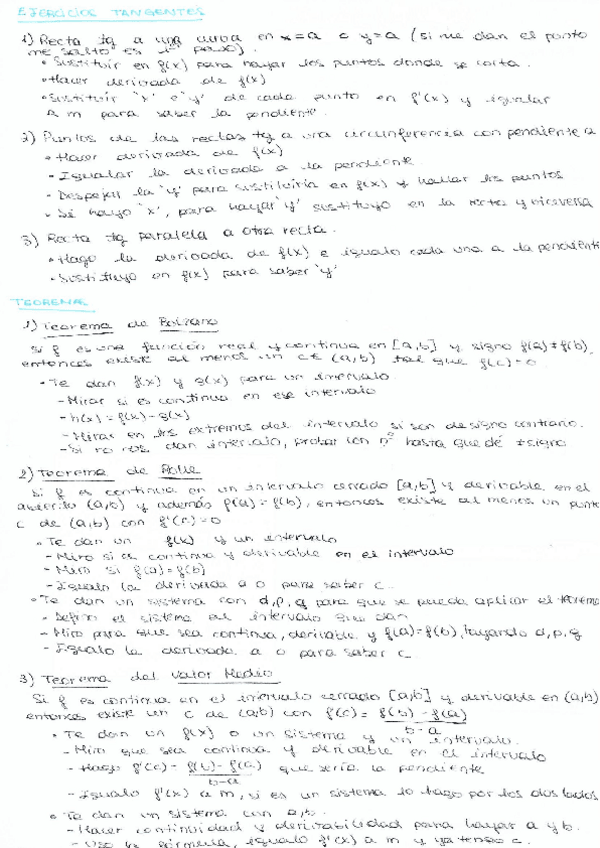 EJERCICIOS TANGENTES
1) Recta tg a una curva en x=a o y=a (si me dan el punto
me salto es 1er paso).
• Sustituir en f(x) para hayar los puntos donde se corta.
• Hacer derivada de f(x)
• Sustituir "x" e "y" de cada punto en f'(x) y igualar
a m para saber la pendiente.
2) Puntos de las rectas tg a una circunferencia con pendiente a
• Hacer derivada de f(x)
- Igualar la derivada a la pendiente.
- Despejar la "y" para sustituirla en f(x) y hallar los puntos
• Si hayo "x", para hayar "y" sustituyo en la recta y viceversa
3) Recta tg paralela a otra recta.
• Hago la derivada de f(x) e igualo cada una a la pendiente
- Sustituyo en f(x) para saber "y"
TEOREMAS
1) Teorema de Bolzano
Si f es una función real y continua en [a,b] y signo f(a) ≠ f(b),
entonces existe al menos un c ∈ (a,b) tal que f(c)=0
• Te dan f(x) y g(x) para un intervalo.
- Mirar si es continua en ese intervalo
- h(x) = f(x) - g(x)
- Mirar en los extremos del intervalo si son de signo contrario.
- Si no nos dan intervalo, probar con nº hasta que dé ≠ signo
2) Teorema de Rolle
Si f es continua en un intervalo cerrado [a,b] y derivable en el
abierto (a,b) y además f(a) = f(b), entonces existe al menos un punto
c de (a,b) con f'(c)=0
• Te dan un f(x) y un intervalo
- Miro si es continua y derivable en el intervalo
- Miro si f(a)=f(b)
- Igualo la derivada a 0 para saber c.
• Te dan un sistema con d, p, q para que se pueda aplicar el teorema
• Definir el sistema en intervalo que dan
- Miro para que sea continua, derivable y f(a)=f(b), hayando d, p, q
- Igualo la derivada a 0 para saber c
3) Teorema del Valor Medio
Si f es continua en el intervalo cerrado [a,b] y derivable en (a,b)
entonces existe un c de (a,b) con f'(c) = f(b) - f(a)
b-a
• Te dan un f(x) o un sistema y un intervalo.
- Miro que sea continua y derivable en el intervalo
- Hago f'(c) = f(b) - f(a) que sería la pendiente
b-a
- Igualo f'(x) a m, si es un sistema lo hago por los dos lados
• Te dan un sistema con a, b.
- Hacer continuidad y derivabilidad para hayar a y b.
- Uso la fórmula, igualo f'(x) a m y ya tengo c.